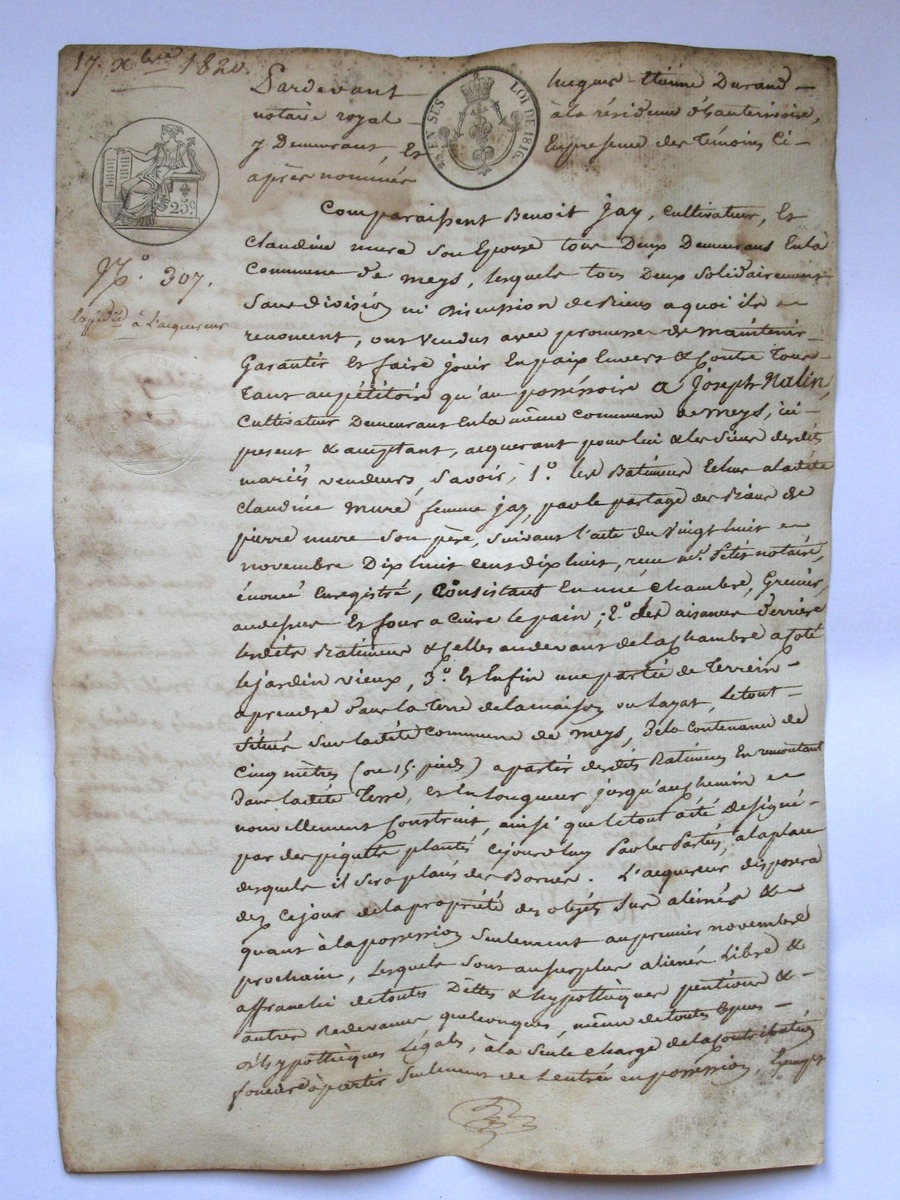 17. Xbre 1820.
Pardevant Jacques-Etienne Durand
notaire royal à la résidence d'hauterivoire,
y Demeurant, Et En presence des Témoins Ci-
après nommés
EN SUS LOI DE 1816.
25 c
N.° 307.
Expédié à l'acquereur
Comparaissent Benoit Jay, Cultivateur, Et
Claudine mure Son Epouse tous Deux Demeurans En la
Commune de meys, lesquels tous Deux Solidairement
Sans division ni discussion de biens a quoi ils
renoncent, ont Vendus avec promesse de maintenir
Garantir Et faire jouir En paix Envers & Contre tous
tant au pétitoire qu'au possessoire à Joseph Nalin,
Cultivateur Demeurant En la même Commune de meys, ici
present & acceptant, acquerant pour lui & les Siens desdits
mariés vendeurs, Savoir, 1.° les Batimens Echus a ladite
Claudine Mure femme jay, par le partage des Biens de
pierre mure Son père, Suivant l'acte du Vingt huit
novembre Dix huit cent dix huit, recu m.e notaire,
énoncé Enregistré, Consistant En une chambre, Grenier,
au dessus Et four a Cuire le pain; 2.° des aisances derrière
lesdits Batimens & celles au devant de la Chambre a coté
le jardin vieux, 3.° Et Enfin une partie de Terrein
a prendre dans la Terre de la maison ou Lazat, le tout
Situés Sur ladite Commune de meys, de la Contenance de
Cinq mètres (ou 15 pieds) a partir desdits Batimens En remontant
dans ladite Terre, et En Longueur jusqu'au chemin
nouvellement Construit, ainsi que le tout a été désigné
par des piquets plantés cejourd'huy Par les Parties, a la place
desquels il Sera planté des Bornes. L'acquereur disposera
dez Ce jour de la propriété des objets Sus aliénés &
quant à la possession Seulement au premier novembre
prochain, Lesquels Sont au Surplus aliénés Libre &
affranchi de toutes Dettes & hypothèques pentions &
autres Redevances quelconques, même de toutes Especes
d'hypothèques Légales, à la Seule Charge de la Contribution
foncière à partir Seulement de L'entrée en possession,